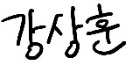 강상훈